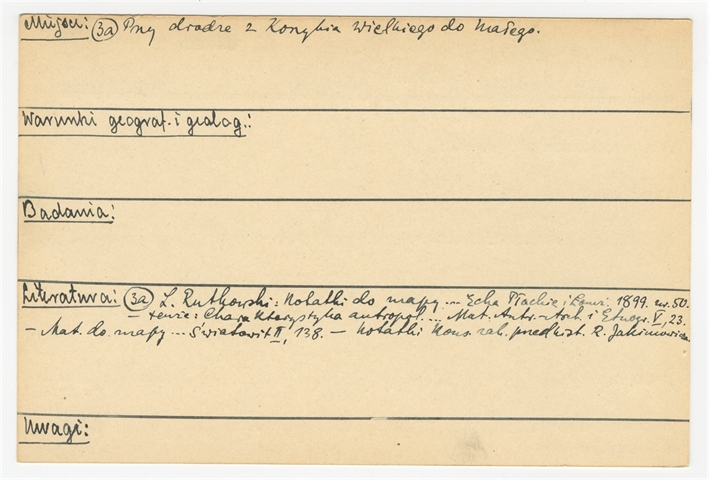 Miejsce: (3a) Przy drodze z Konybia Wielkiego do Małego.
Warunki geograf. i geolog.:
Badania:
Literatura: (3a) L. Rutkowski: Notatki do mapy... Echa Płockie i Łomż. 1899. nr. 50.
– tenże: Charakterystyka antropol. ... Mat. Antr.-Arch. i Etnogr. V, 23.
– Mat. do mapy ... Światowit II, 138. – Notatki Kons. zab. przedhist. R. Jakimowicza
Uwagi: